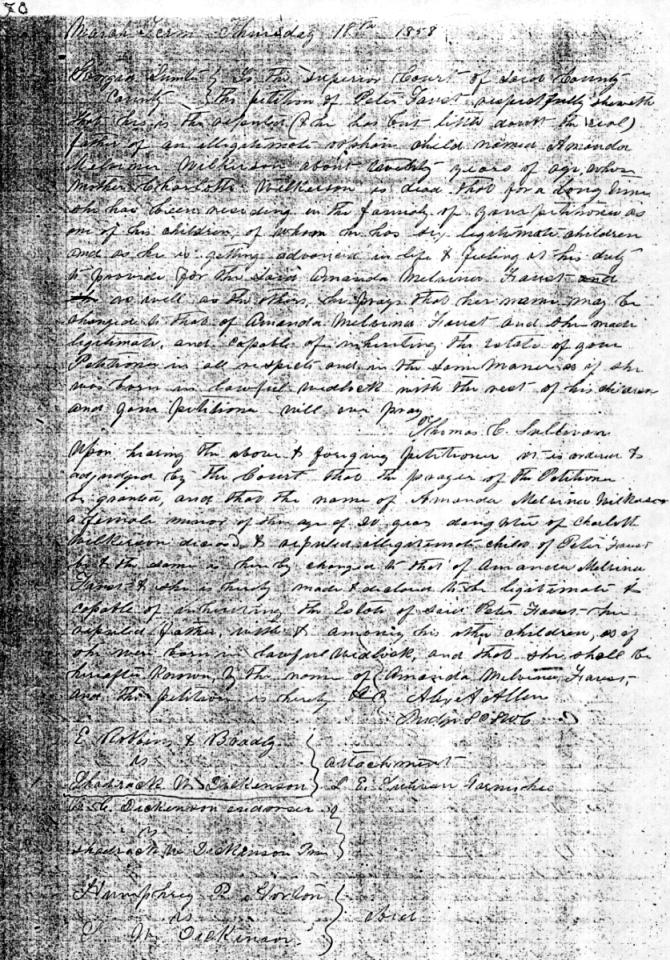 70
March Term Thursday 18th 1858
Georgia Sumter } To the Superior Court of said County
County } the petition of Peter Faust respectfully sheweth
that he is the reputed (& he has but little doubt the real)
father of an illegitimate orphan child named Amanda
Melvina Wilkerson about twenty years of age whose
Mother Charlotte Wilkerson is dead that for a long time
she has been residing in the family of your petitioner as
one of his children, of whom he has six legitimate children
and as he is getting advanced in life & feeling it his duty
to provide for the said Amanda Melvina Faust and
as well as the others, he prays that her name may be
changed to that of Amanda Melvina Faust and she made
legitimate, and capable of inheriting the estate of your
Petitioner in all respects and in the same Maner as if she
was born in lawful wedlock with the rest of his children
and your petitioner will ever pray
Thomas C. Sullivan
Upon hearing the above & forgoing petitioner it is ordered &
adjudged by the Court that the prayer of the Petitioner
be granted, and that the name of Amanda Melvina Wilkerson
a female minor of the age of 20 years daughter of Charlott
Wilkerson decesd & reputed illegitimate child of Peter Faust
be & the same is hereby changed to that of Amanda Melvina
Faust & she is hereby made & declared to be legitimate &
capable of inheriting the Estate of said Peter Faust her
reputed father, with & among his other children, as if
she were born in lawful wedlock, and that she shall be
hereafter known by the name of Amanda Melvina Faust,
and this petition is hereby Alex A Allen
Judge
E Robbins & Bradly
vs } attachment
Shadrack W Dickinson } L E Sullivan Garnishee
Dickinson endorser
vs
Shadrack W Dickinson
Humphrey R Horton
vs
W Dickinson